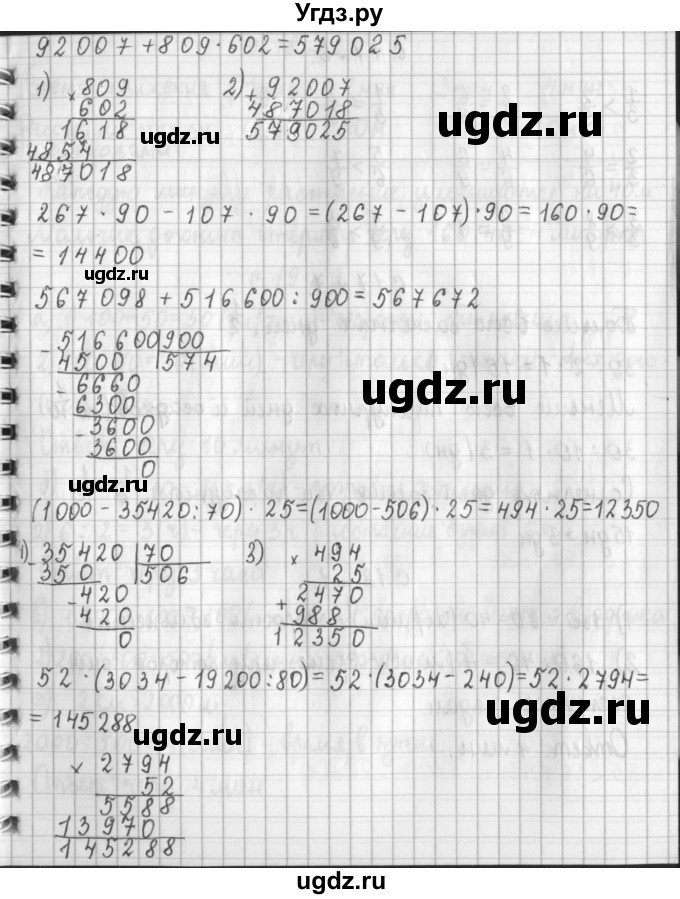 Угдз.ру
92007+809·602=579025
1) ×809 2) +92007
602 487018
1618 579025
4854
487018
ugdz.ru
ugdz.ru
267·90-107·90=(267-107)·90=160·90=
=14400
ugdz.ru
567098+516600:900=567672
-516600 900
4500 574
-6660
6300
-3600
3600
0
ugdz.ru
ugdz.ru
(1000-35420:70)·25=(1000-506)·25=494·25=12350
1) -35420 70 3) ×494
350 506 25
-420 + 2470
420 988
0 12350
ugdz.ru
52·(3034-19200:80)=52·(3034-240)=52·2794=
=145288
ugdz.ru
ugdz.ru
×2794
52
5588
13970
145288
ugdz.ru
ugdz.ru